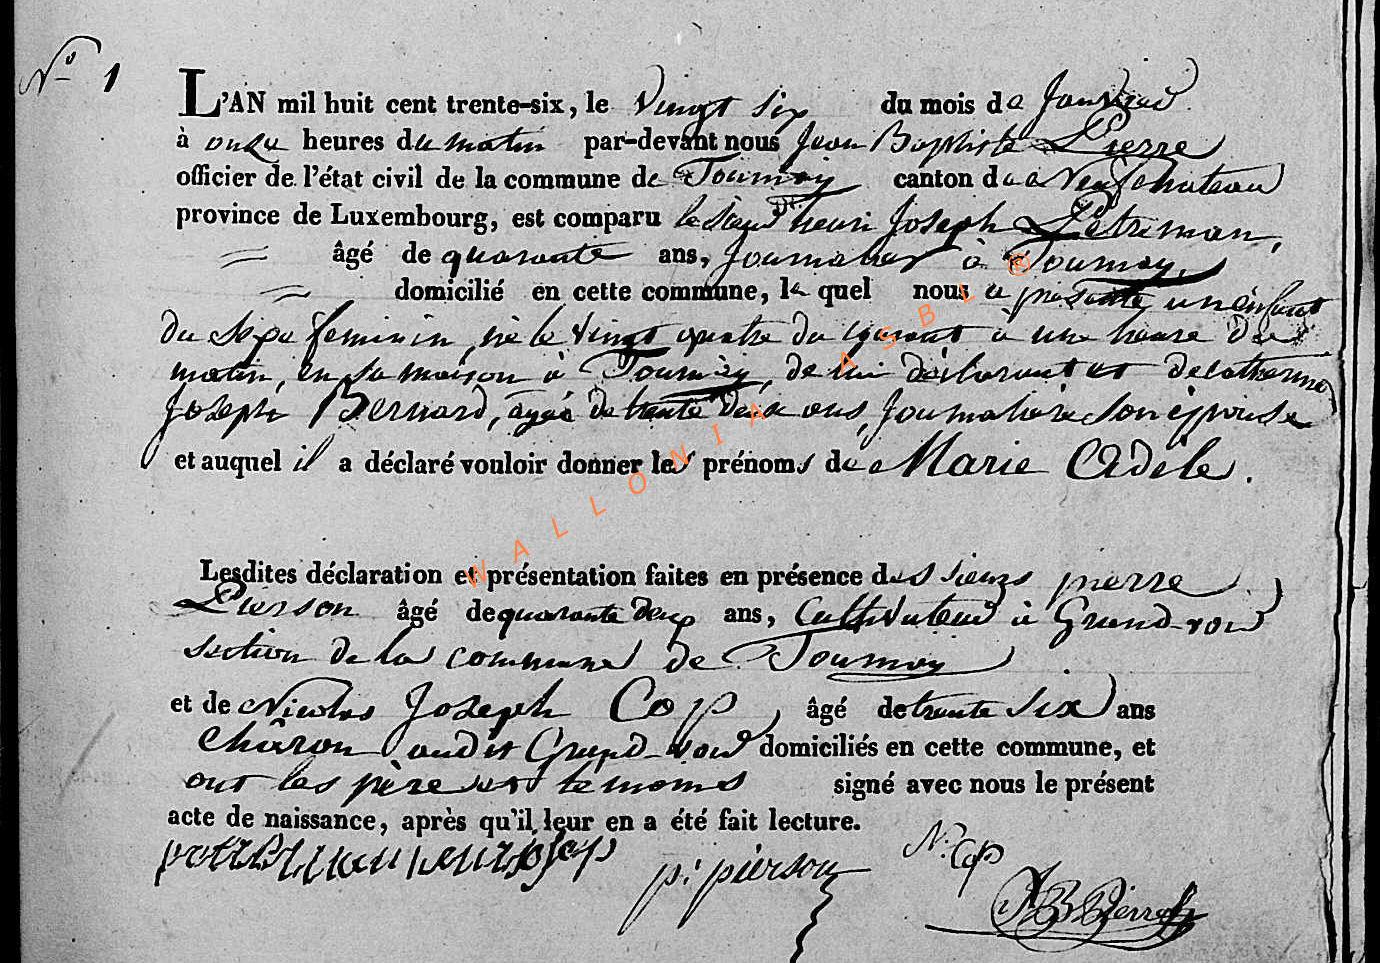 N° 1
L'AN mil huit cent trente-six, le Vingt six du mois de Janvier
à onze heures du matin par-devant nous Jean Baptiste Pierre
officier de l'état civil de la commune de Tournay canton de Neufchateau
province de Luxembourg, est comparu le Sieur henri Joseph Pétriman,
âgé de quarante ans, Journalier à Tournay,
domicilié en cette commune, le quel nous a présenté un enfant
du sexe feminin, né le vingt quatre du courant à une heure de
matin, en sa maison à Tournay, de lui déclarant et de catherine
Joseph Bernard, agée de trente deux ans, Journaliere son épouse
et auquel il a déclaré vouloir donner les prénoms de Marie Adele.
Lesdites déclaration et présentation faites en présence des sieurs pierre
Pierson âgé de quarante deux ans, Cultivateur à Grand-voir
section de la commune de Tournay
et de Nicolas Joseph Cop, âgé de trente six ans
charon audit Grand-voir domiciliés en cette commune, et
ont les père et témoins signé avec nous le présent
acte de naissance, après qu'il leur en a été fait lecture.
p: pierson
N. Cop
JB Pierre
WALLONIA ASBL ®